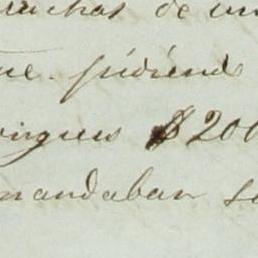 muchas de un
que pidiendo
ingues $200
mandaban se